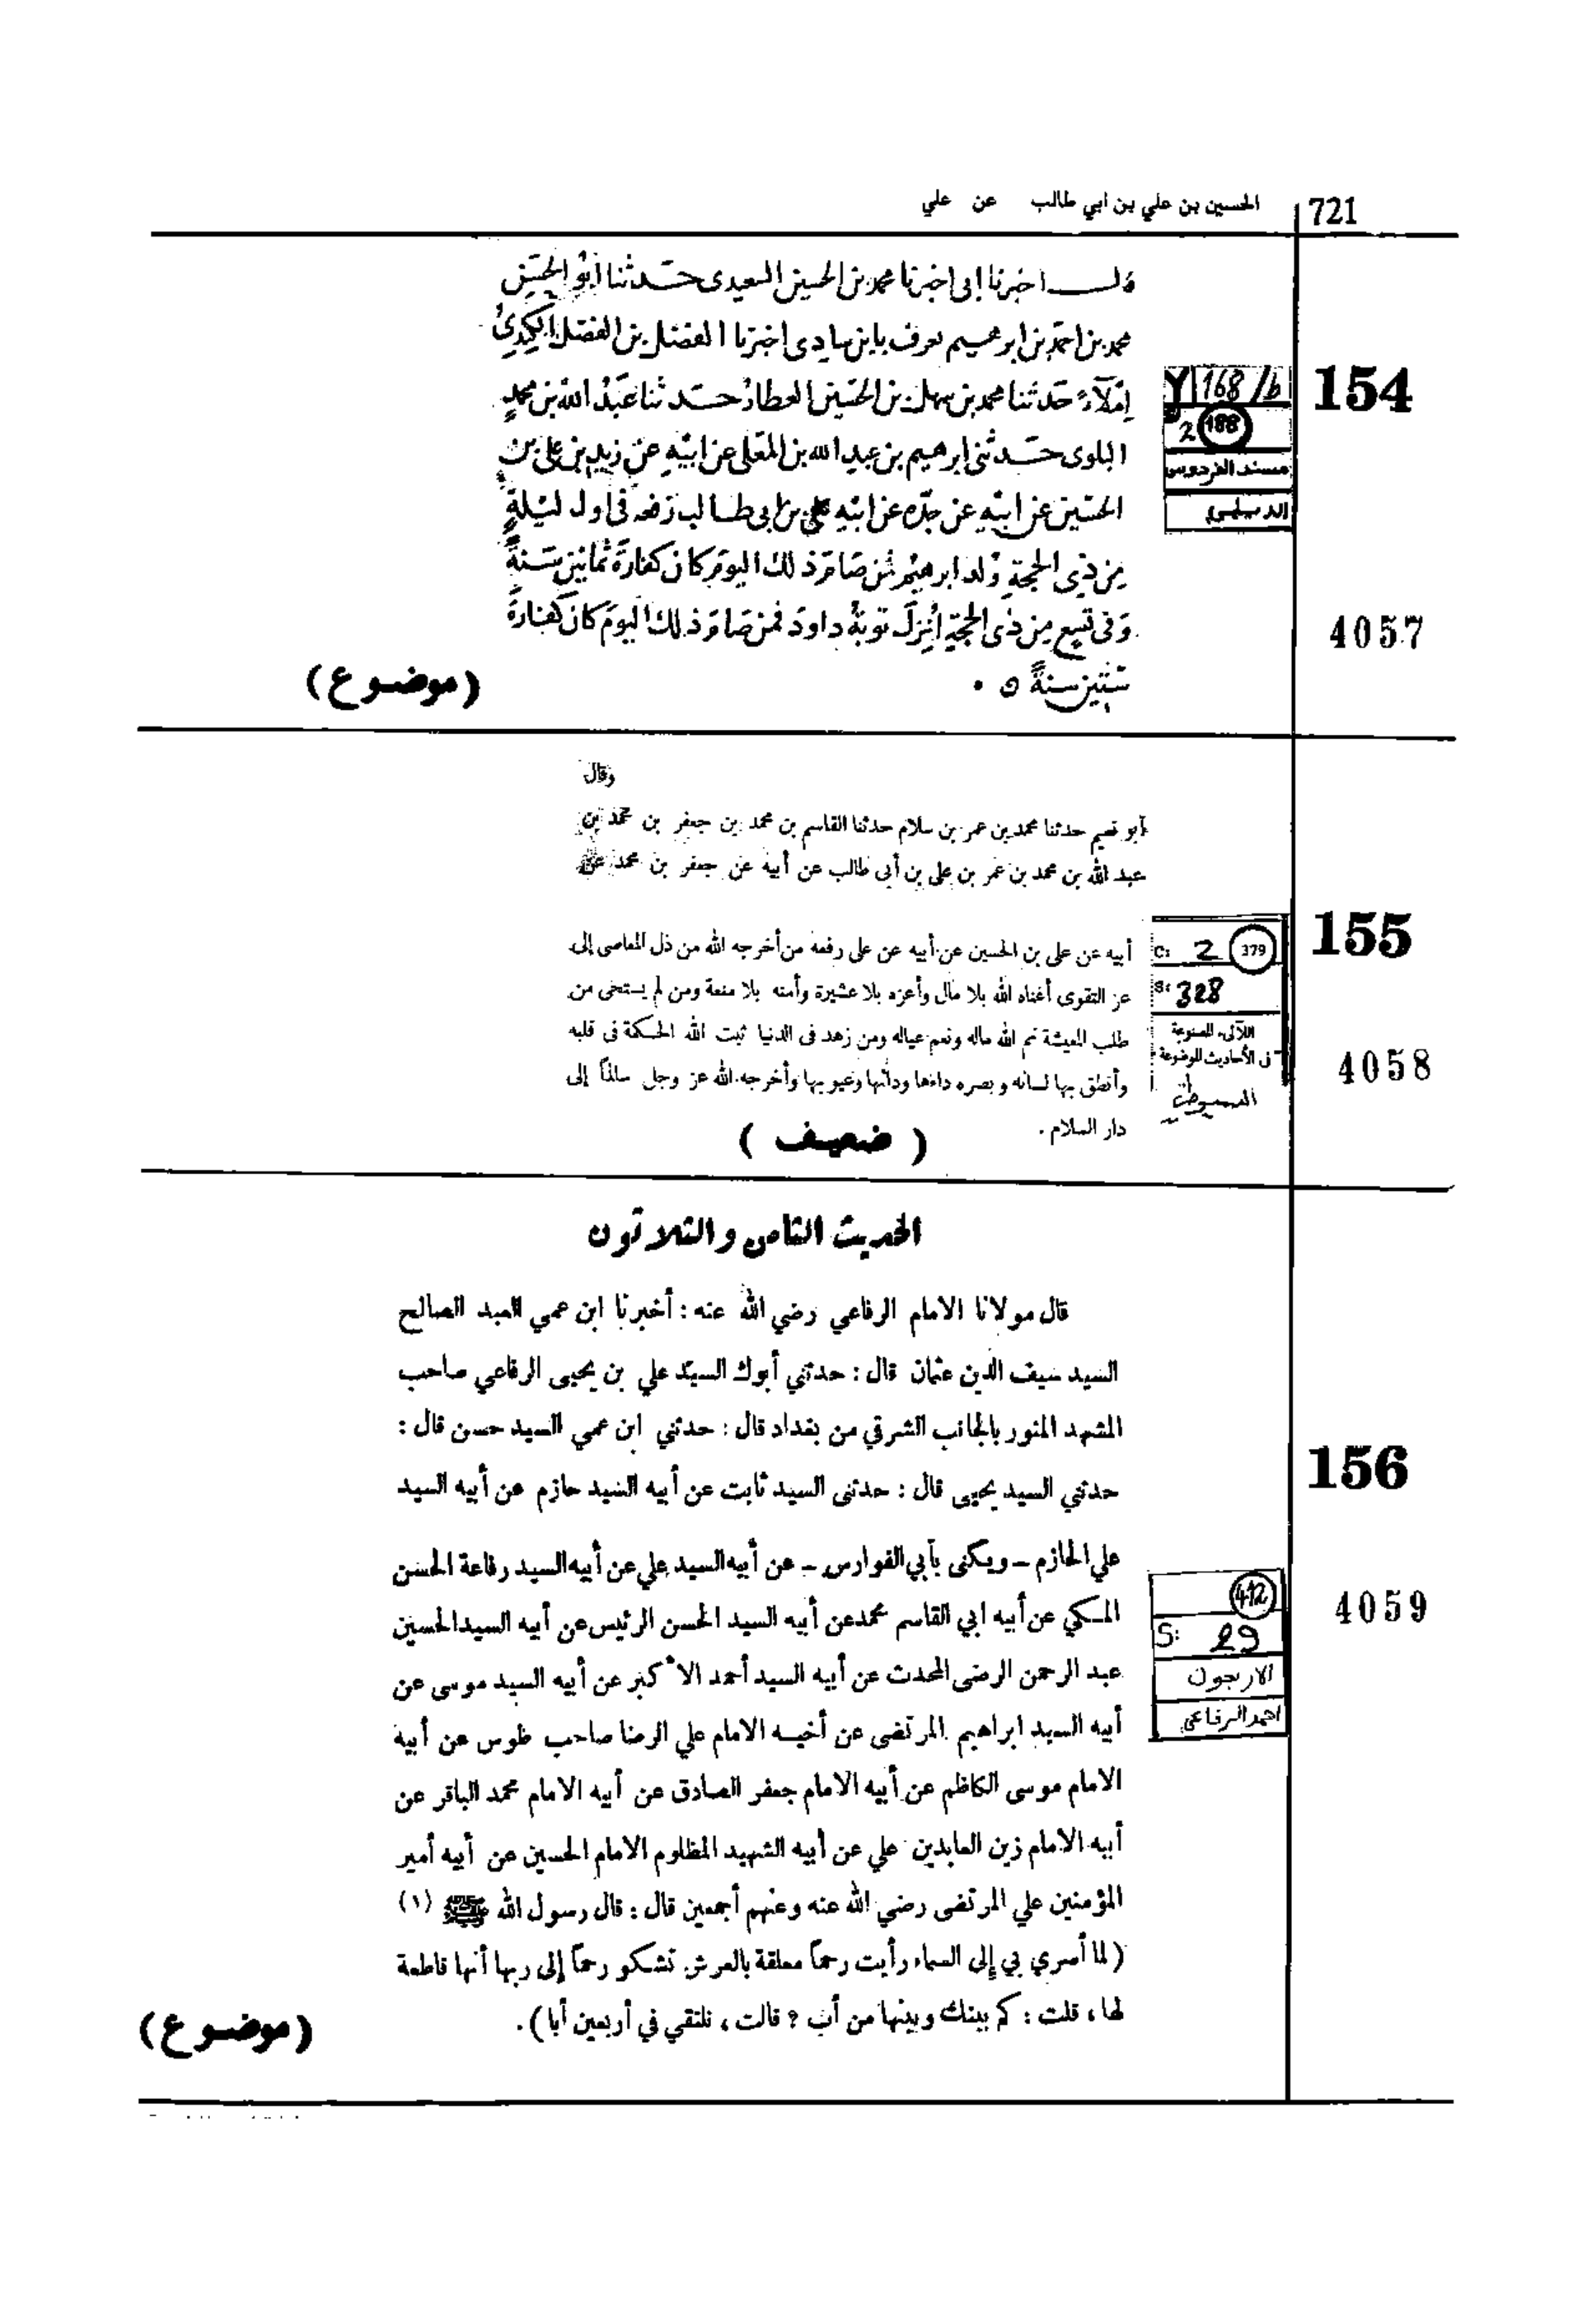 721
الحسين بن علي بن ابي طالب عن علي
قال اخبرنا ابي اخبرنا محمد بن الحسين السعيدى حدثنا ابو الحسين
محمد بن احمد بن ابرهيم يعرف بابن بادى اخبرنا الفضل بن الفضل الكندى
إملاءً حدثنا محمد بن سهل بن الحسين العطار حدثنا عبد الله بن محمد
البلوى حدثنى ابرهيم بن عبد الله بن المعلى عن ابيه عن زيد بن على بن
الحسين عن ابيه عن جده عن ابيه على بن ابى طالب رفعه فى اول ليلةٍ
من ذي الحجة ولد ابرهيم فمن صام ذلك اليوم كان كفارة ثمانين سنةً
وفى تسع من ذى الحجة أنزل توبة داود فمن صام ذلك اليوم كان كفارة
ستين سنةً ه .
(موضوع)
154
4057
Y 168/b
2 188
مسند الفردوس
الديلمي
وقال
أبو نعيم حدثنا محمد بن عمر بن سلام حدثنا القاسم بن محمد بن جعفر بن محمد بن
عبد الله بن محمد بن عمر بن على بن أبى طالب عن أبيه عن جعفر بن محمد عن
أبيه عن على بن الحسين عن أبيه عن على رفعه من أخرجه الله من ذل المعاصى إلى
عز التقوى أغناه الله بلا مال وأعزه بلا عشيرة وأمنه بلا منعة ومن لم يستحى من
طلب المعيشة نم الله ماله ونعم عياله ومن زهد فى الدنيا ثبت الله الحكمة فى قلبه
وأنطق بها لسانه وبصره داءها ودائها وعيوبها وأخرجه الله عز وجل سالماً إلى
دار السلام .
( ضعيف )
155
4058
C: 2 379
S: 328
اللآلىء المصنوعة
فى الأحاديث الموضوعة
السيوطي
الحديث الثامن والثلاثون
قال مولانا الامام الرفاعي رضي الله عنه : أخبرنا ابن عمي العبد الصالح
السيد سيف الدين عثمان قال : حدثني أبوك السيد علي بن يحيى الرفاعي صاحب
المشهد المنور بالجانب الشرقي من بغداد قال : حدثني ابن عمي السيد حسن قال :
حدثني السيد يحيى قال : حدثنى السيد ثابت عن أبيه السيد حازم عن أبيه السيد
علي الحازم – ويكنى بأبي الفوارس – عن أبيه السيد علي عن أبيه السيد رفاعة الحسن
المكي عن أبيه ابي القاسم محمد عن أبيه السيد الحسن الرئيس عن أبيه السيد الحسين
عبد الرحمن الرضى المحدث عن أبيه السيد أحمد الأكبر عن أبيه السيد موسى عن
أبيه السيد ابراهيم المرتضى عن أخيه الامام علي الرضا صاحب طوس عن أبيه
الامام موسى الكاظم عن أبيه الامام جعفر الصادق عن أبيه الامام محمد الباقر عن
أبيه الامام زين العابدين علي عن أبيه الشهيد المظلوم الامام الحسين عن أبيه أمير
المؤمنين علي المرتضى رضي الله عنه وعنهم أجمعين قال : قال رسول الله ﷺ (١)
( لما أسري بي إلى السماء رأيت رحماً معلقة بالعرش تشكو رحماً إلى ربها أنها قاطعة
لها ، قلت : كم بينك وبينها من أب ؟ قالت ، نلتقي في أربعين أبا ) .
(موضوع)
156
4059
412
S: 29
الاربعون
احمد الرفاعي